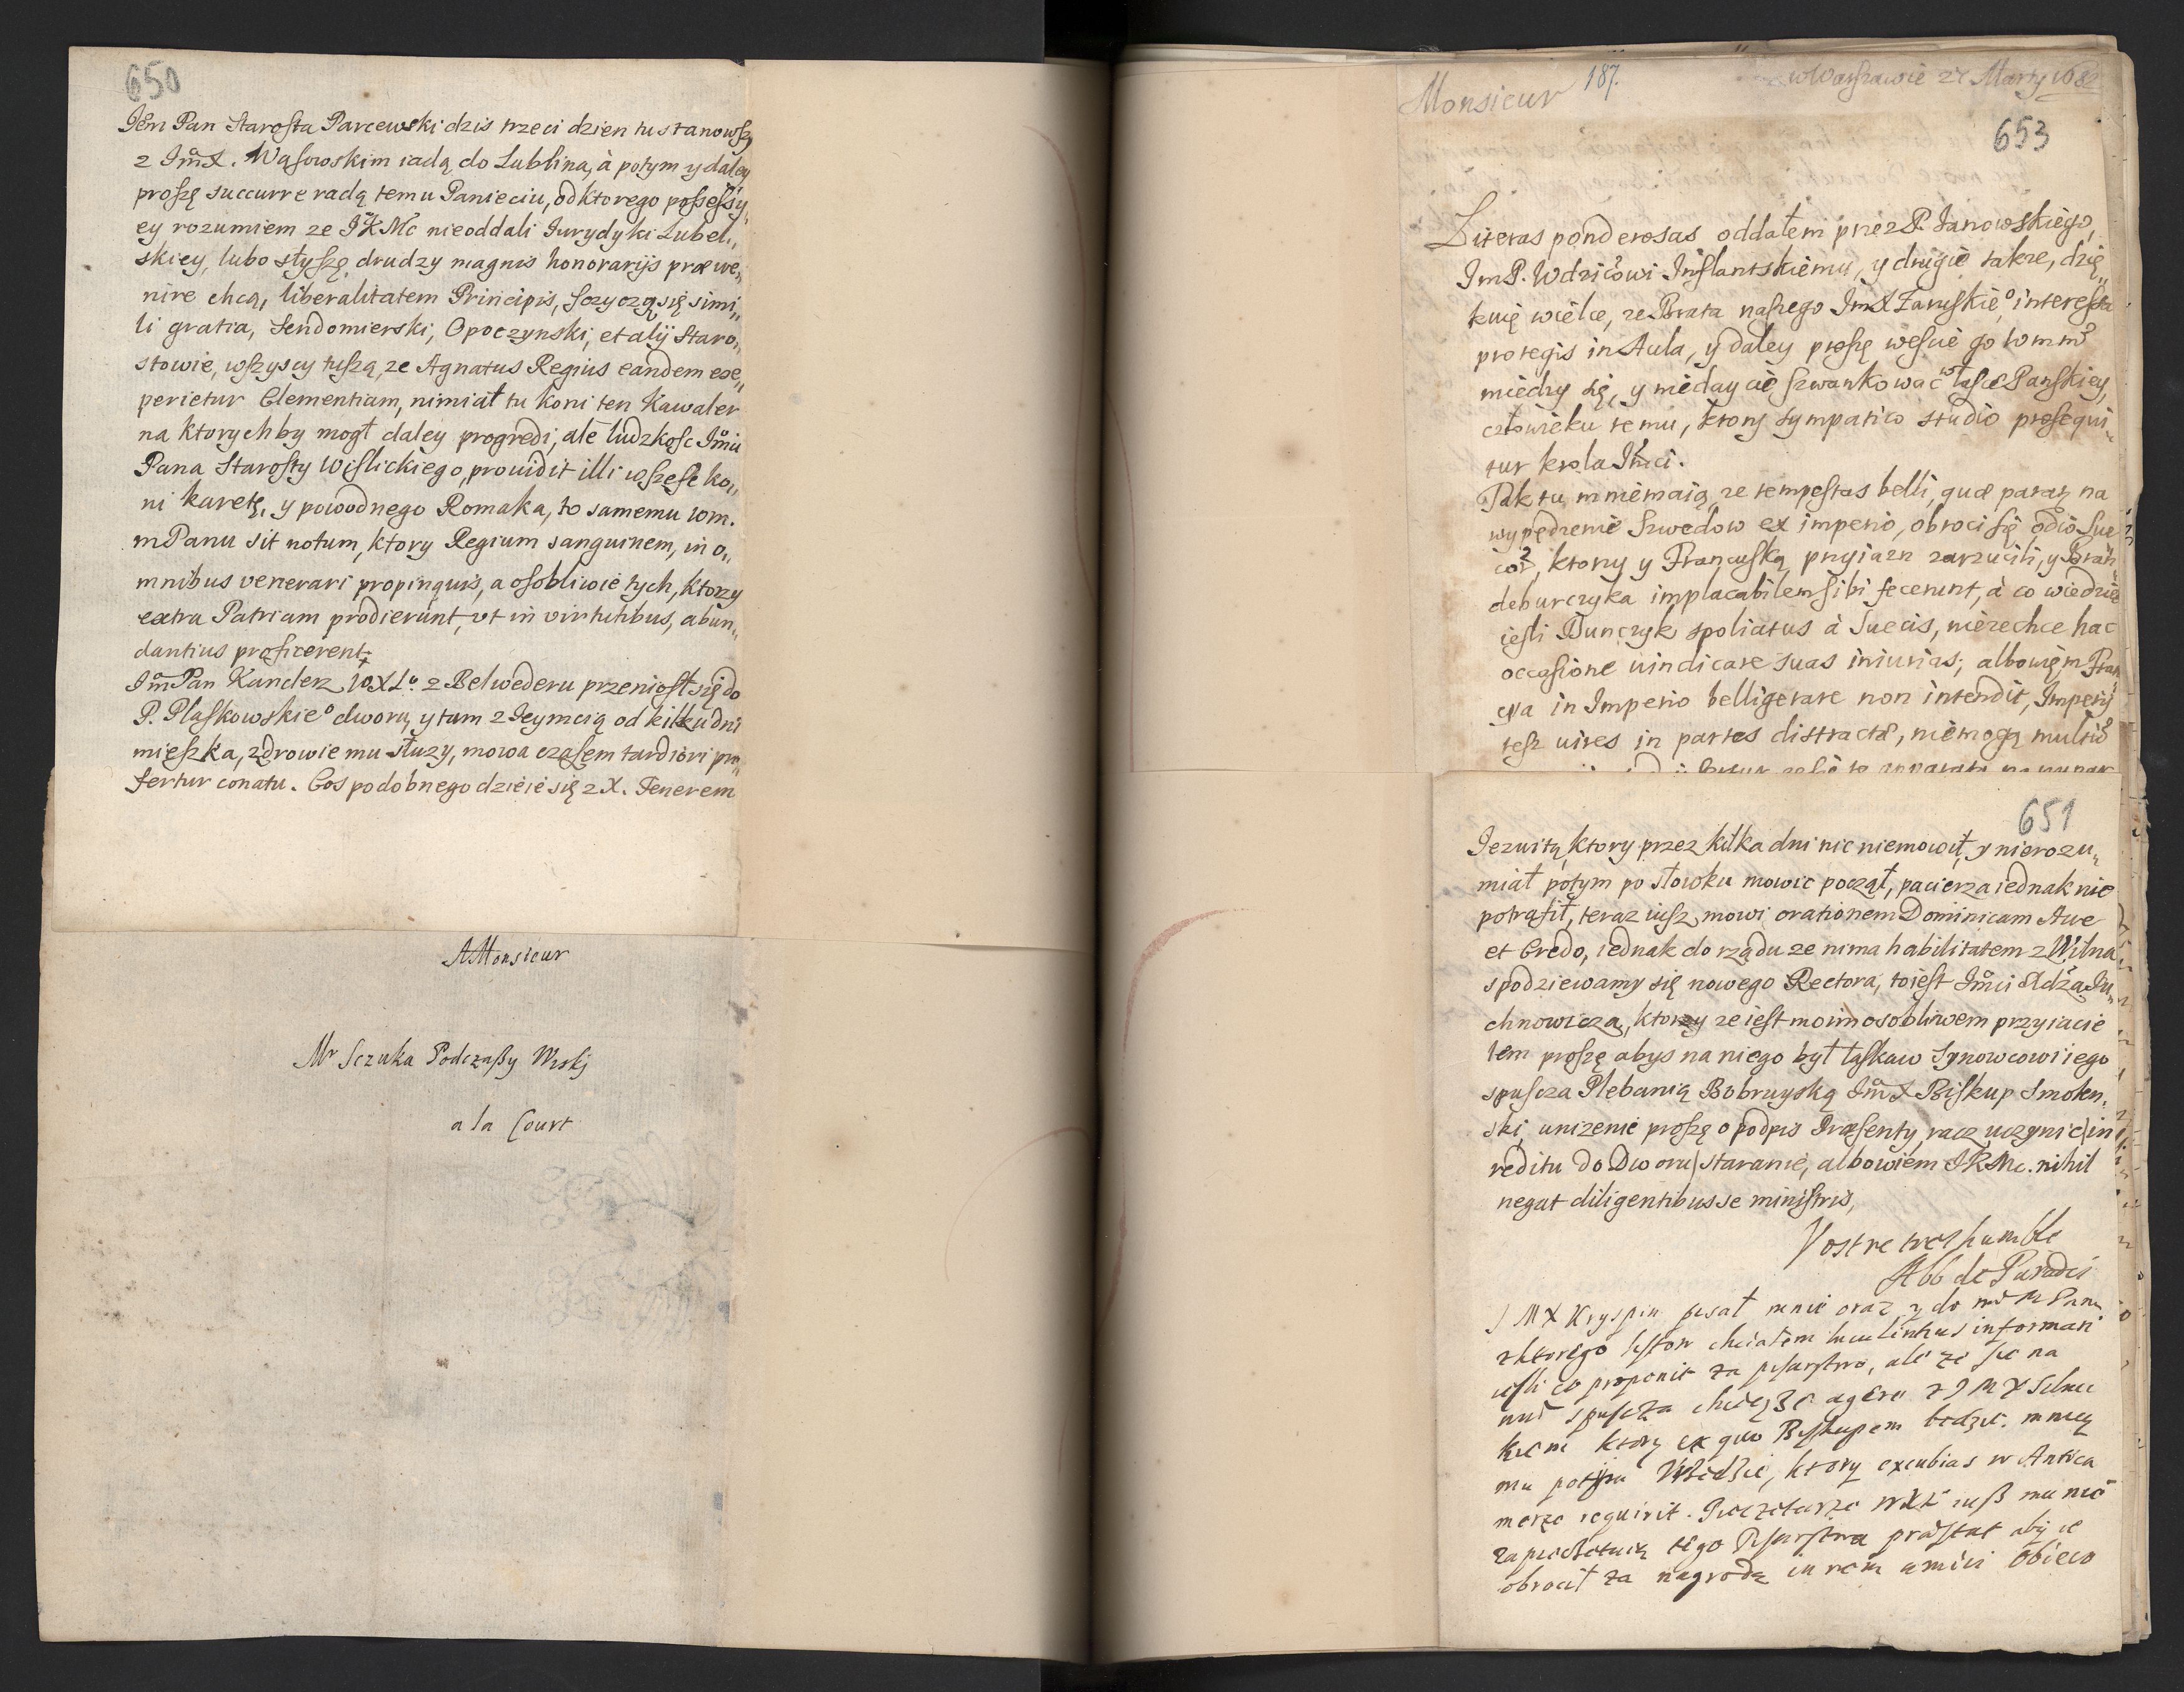 650
Jem Pan Starosta Parcewski dzis trzeci dzien tu stanowszy
z JmX. Wąsowskim iadą do Lublina, à potym y daley
proszę succurre radą temu Panieciu, od ktorego possessy„
ey rozumiem ze JKMc nieoddali Jurydyki Lubel„
skiey, lubo słyszę drudzy magnis honorarijs præwe„
nire chcą, liberalitatem Principis, sczyczą się simi„
li gratia, Sendomierski, Opoczynski, et alij Staro„
stowie, wszyscy tuszą, ze Agnatus Regius eandem exe„
perietur Clementiam, nimiał tu koni ten Kawaler
na ktorychby mogł daley progredi, ale ludzkosc Jmci
Pana Starosty Wislickiego, prouidit illi wszesc ko„
ni karetę, y powodnego Romaka, to samemu wm.
mPanu sit notum, ktory Regium sanguinem, in o„
mnibus venerari propinquis, a osobliwie tych, ktorzy
extra Patriam prodierunt, vt in virtutibus, abun„
dantius proficerent.
JmPan Kanclerz WXLo. z Belwederu przeniosł się do
P. Plaskowskieo dworu, y tam z Jeymcią od kilku dni
mieszka, zdrowie mu słuzy, mowa czasem tardiori pro„
fertur conatu. Cos podobnego dzieie się z X. Fenerem
A Monsieur
Mr Sczuka Podczaszy Wiski
a la Court
Monsieur
187.
w Warszawie 27 Marty 1682
653
Literas ponderosas oddałem przez P. Janowskiego,
JmP. Wdzicowi Inflantskiemu, y drugie takze, dzię„
kuię wielce, ze Brata naszego JmX Zaruskieo interessa
protegis in Aula, y daley proszę wescie go wmm
miedzy się, y niedaycie szwankowac w łasce Panskiey,
człowieku temu, ktory sympatico studio prosequi„
tur krola Jmci.
Tak tu mniemaią, ze tempestas belli, quæ paratur na
wypędzenie Szwedow ex imperio, obroci się odio Sue
cor, ktorzy y Francuską przyiazn zarzucili, y Bran„
deburczyka implacabilem sibi fecerunt, à co wiedziec
iesli Dunczyk spoliatus à Suecis, niezechce hac
occasione uindicare suas iniurias; albowięm Fran„
cya in Imperio belligerare non intendit, Imperij
tesz uires in partes distractæ, niemogą multis
651
Jezuitą, ktory przez kilka dni nic niemowił, y nierozu„
miał potym po słowku mowic począł, pacierza iednak nie
potrafił, teraz iusz mowi orationem Dominicam Ave
et Credo, iednak do rządu ze nima habilitatem z Wilna
spodziewamy się nowego Rectora, toiest Jmci Xdza Pu„
chnowicza, ktorzy ze iest moim osobliwem przyiacie
lem proszę abys na niego był łaskaw Synowcowi iego
spuscza Plebanią Bobruyską JmX Biskup Smolen„
ski, unizenie proszę o podpis Præsenty, racz uczynic in
reditu do Dworu staranie, albowiem JKMc. nihil
negat diligentibus se ministris,
Vostre tres humble
Abb de Paradis
JMX Kryspin pisał mnie oraz y do
z ktorego listow chciałem luculentius informari
iesli co proponit za pisarstwo, ale ze sie na
spuscza chcę agere z JMX
ktory ex quo Biskupem będzie.
mu potym ktory excubias w Antica
merze requirit.
tego Pisarstwa præstat aby ie
obrocił za nagrodę in rem amici